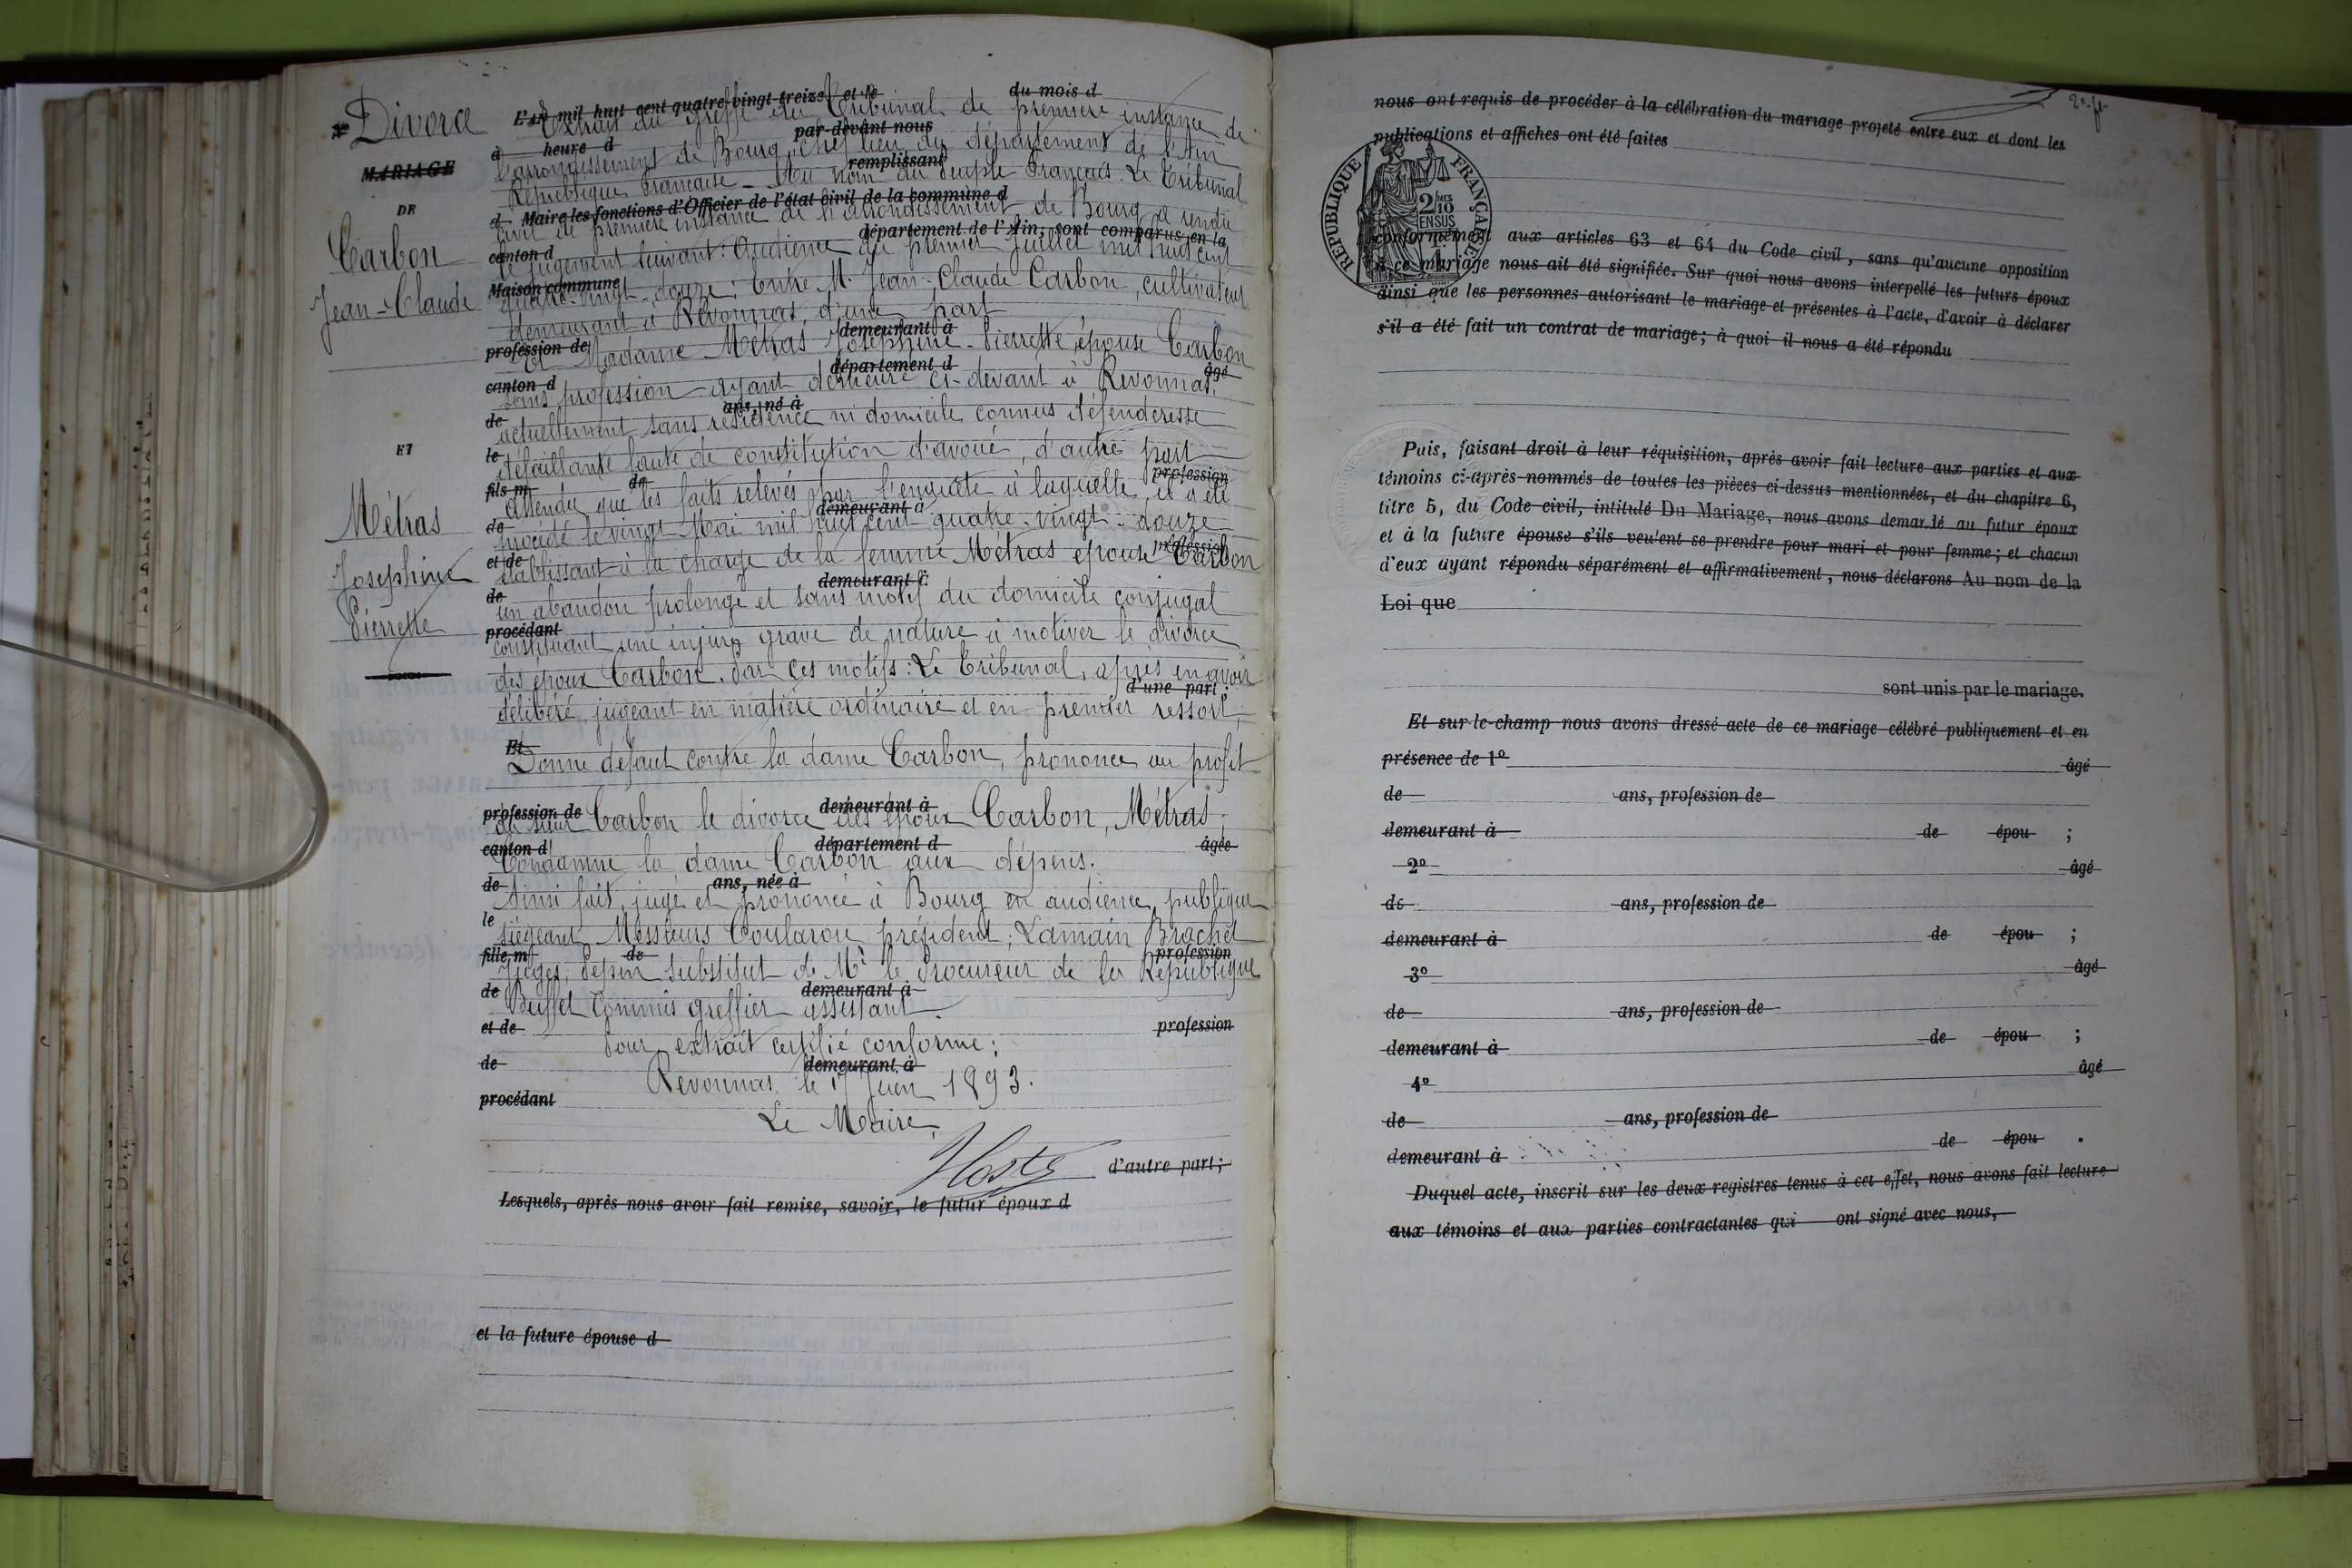 Divorce
MARIAGE
DE
Carbon
Jean-Claude
ET
Métras
Joséphine
Pierrette
L'an mil huit cent quatre-vingt-treize et le du mois d
Extrait du Greffe du Tribunal de première instance de
à heure d par-devant nous
l'arrondissement de Bourg, chef lieu du département de l'Ain
remplissant
République Française - Au nom du Peuple Français. Le Tribunal
d Maire les fonctions d'Officier de l'état civil de la commune d
civil de première instance de l'arrondissement de Bourg a rendu
canton d département de l'Ain, sont comparus en la
le jugement suivant: Audience du premier Juillet mil huit cent
Maison commune
quatre-vingt-douze; Entre M. Jean-Claude Carbon, cultivateur
demeurant à Revonnas, d'une part
profession de demeurant à
Et Madame Métras Joséphine-Pierrette, épouse Carbon
canton d département d âgé
sans profession ayant demeuré ci-devant à Revonnas,
de ans, né à
actuellement sans résidence ni domicile connus défenderesse
le
défaillante faute de constitution d'avoué, d'autre part
fils m de profession
Attendu que les faits relevés par l'enquête à laquelle il a été
de demeurant à
procédé le vingt Mai mil huit cent quatre-vingt-douze
et de profession
établissant à la charge de la femme Métras épouse Carbon
de demeurant à
un abandon prolongé et sans motif du domicile conjugal
procédant
constituant une injure grave de nature à motiver le divorce
des époux Carbon. Par ces motifs: Le Tribunal, après en avoir
d'une part;
délibéré, jugeant en matière ordinaire et en premier ressort,
Et
Donne défaut contre la dame Carbon, prononce au profit
profession de demeurant à
du sieur Carbon le divorce des époux Carbon, Métras;
canton d département d âgée
Condamne la dame Carbon aux dépens.
de ans, née à
Ainsi fait, jugé et prononcé à Bourg en audience publique
le
siégeant Messieurs Coularou président; Lamain Brachet
fille, m de profession
Juges; Pepin substitut de Mr le Procureur de la République
de demeurant à
Buffet Commis greffier assistant.
et de profession
Pour extrait certifié conforme;
de demeurant à
Revonnas, le 17 Juin 1893.
procédant
Le Maire,
d'autre part;
Lesquels, après nous avoir fait remise, savoir, le futur époux d
et la future épouse d
nous ont requis de procéder à la célébration du mariage projeté entre eux et dont les
publications et affiches ont été faites
RÉPUBLIQUE FRANÇAISE
2/10 EN SUS
conformément aux articles 63 et 64 du Code civil, sans qu'aucune opposition
à ce mariage nous ait été signifiée. Sur quoi nous avons interpellé les futurs époux
ainsi que les personnes autorisant le mariage et présentes à l'acte, d'avoir à déclarer
s'il a été fait un contrat de mariage; à quoi il nous a été répondu
Puis, faisant droit à leur réquisition, après avoir fait lecture aux parties et aux
témoins ci-après nommés de toutes les pièces ci-dessus mentionnées, et du chapitre 6,
titre 5, du Code civil, intitulé Du Mariage, nous avons demandé au futur époux
et à la future épouse s'ils veulent se prendre pour mari et pour femme; et chacun
d'eux ayant répondu séparément et affirmativement, nous déclarons Au nom de la
Loi que
sont unis par le mariage.
Et sur-le-champ nous avons dressé acte de ce mariage célébré publiquement et en
présence de 1º âgé
de ans, profession de
demeurant à de épou ;
2º âgé
de ans, profession de
demeurant à de épou ;
3º âgé
de ans, profession de
demeurant à de épou ;
4º âgé
de ans, profession de
demeurant à de épou .
Duquel acte, inscrit sur les deux registres tenus à cet effet, nous avons fait lecture
aux témoins et aux parties contractantes qui ont signé avec nous,